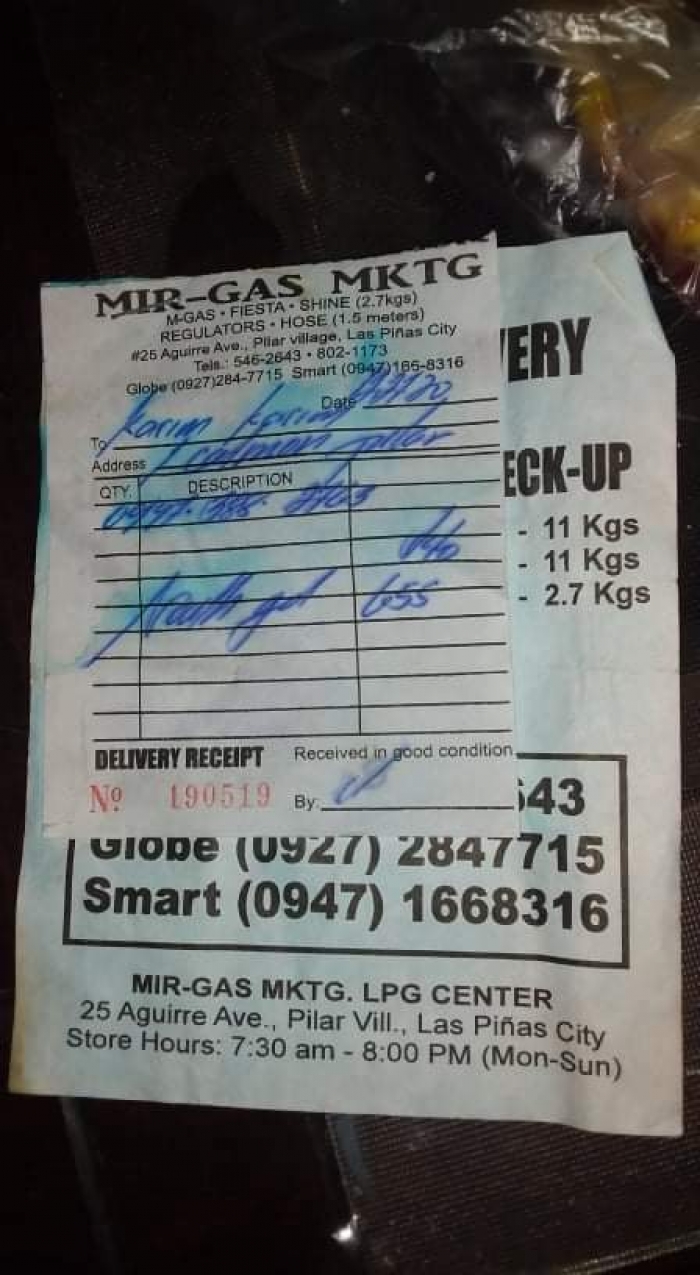 MIR-GAS MKTG
M-GAS • FIESTA • SHINE (2.7kgs)
REGULATORS • HOSE (1.5 meters)
#25 Aguirre Ave., Pilar village, Las Piñas City
Tels.: 546-2643 • 802-1173
Globe (0927)284-7715 Smart (0947)166-8316
Date
To
Address pilar
QTY. DESCRIPTION
655
DELIVERY RECEIPT Received in good condition
Nº 190519 By:
VERY
ECK-UP
- 11 Kgs
- 11 Kgs
- 2.7 Kgs
643
Globe (0927) 2847715
Smart (0947) 1668316
MIR-GAS MKTG. LPG CENTER
25 Aguirre Ave., Pilar Vill., Las Piñas City
Store Hours: 7:30 am - 8:00 PM (Mon-Sun)